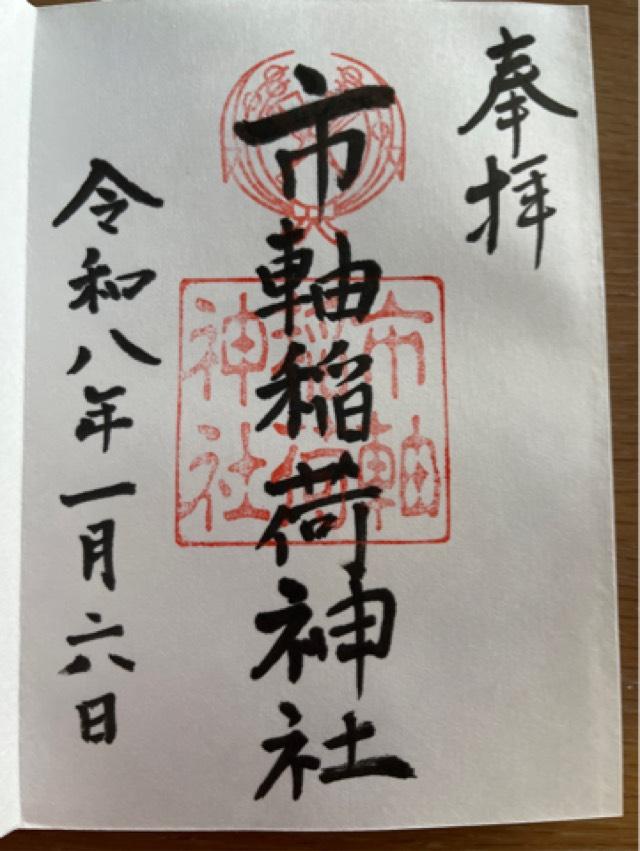 奉拝
市軸稲荷神社
市軸稲荷神社
令和八年一月六日